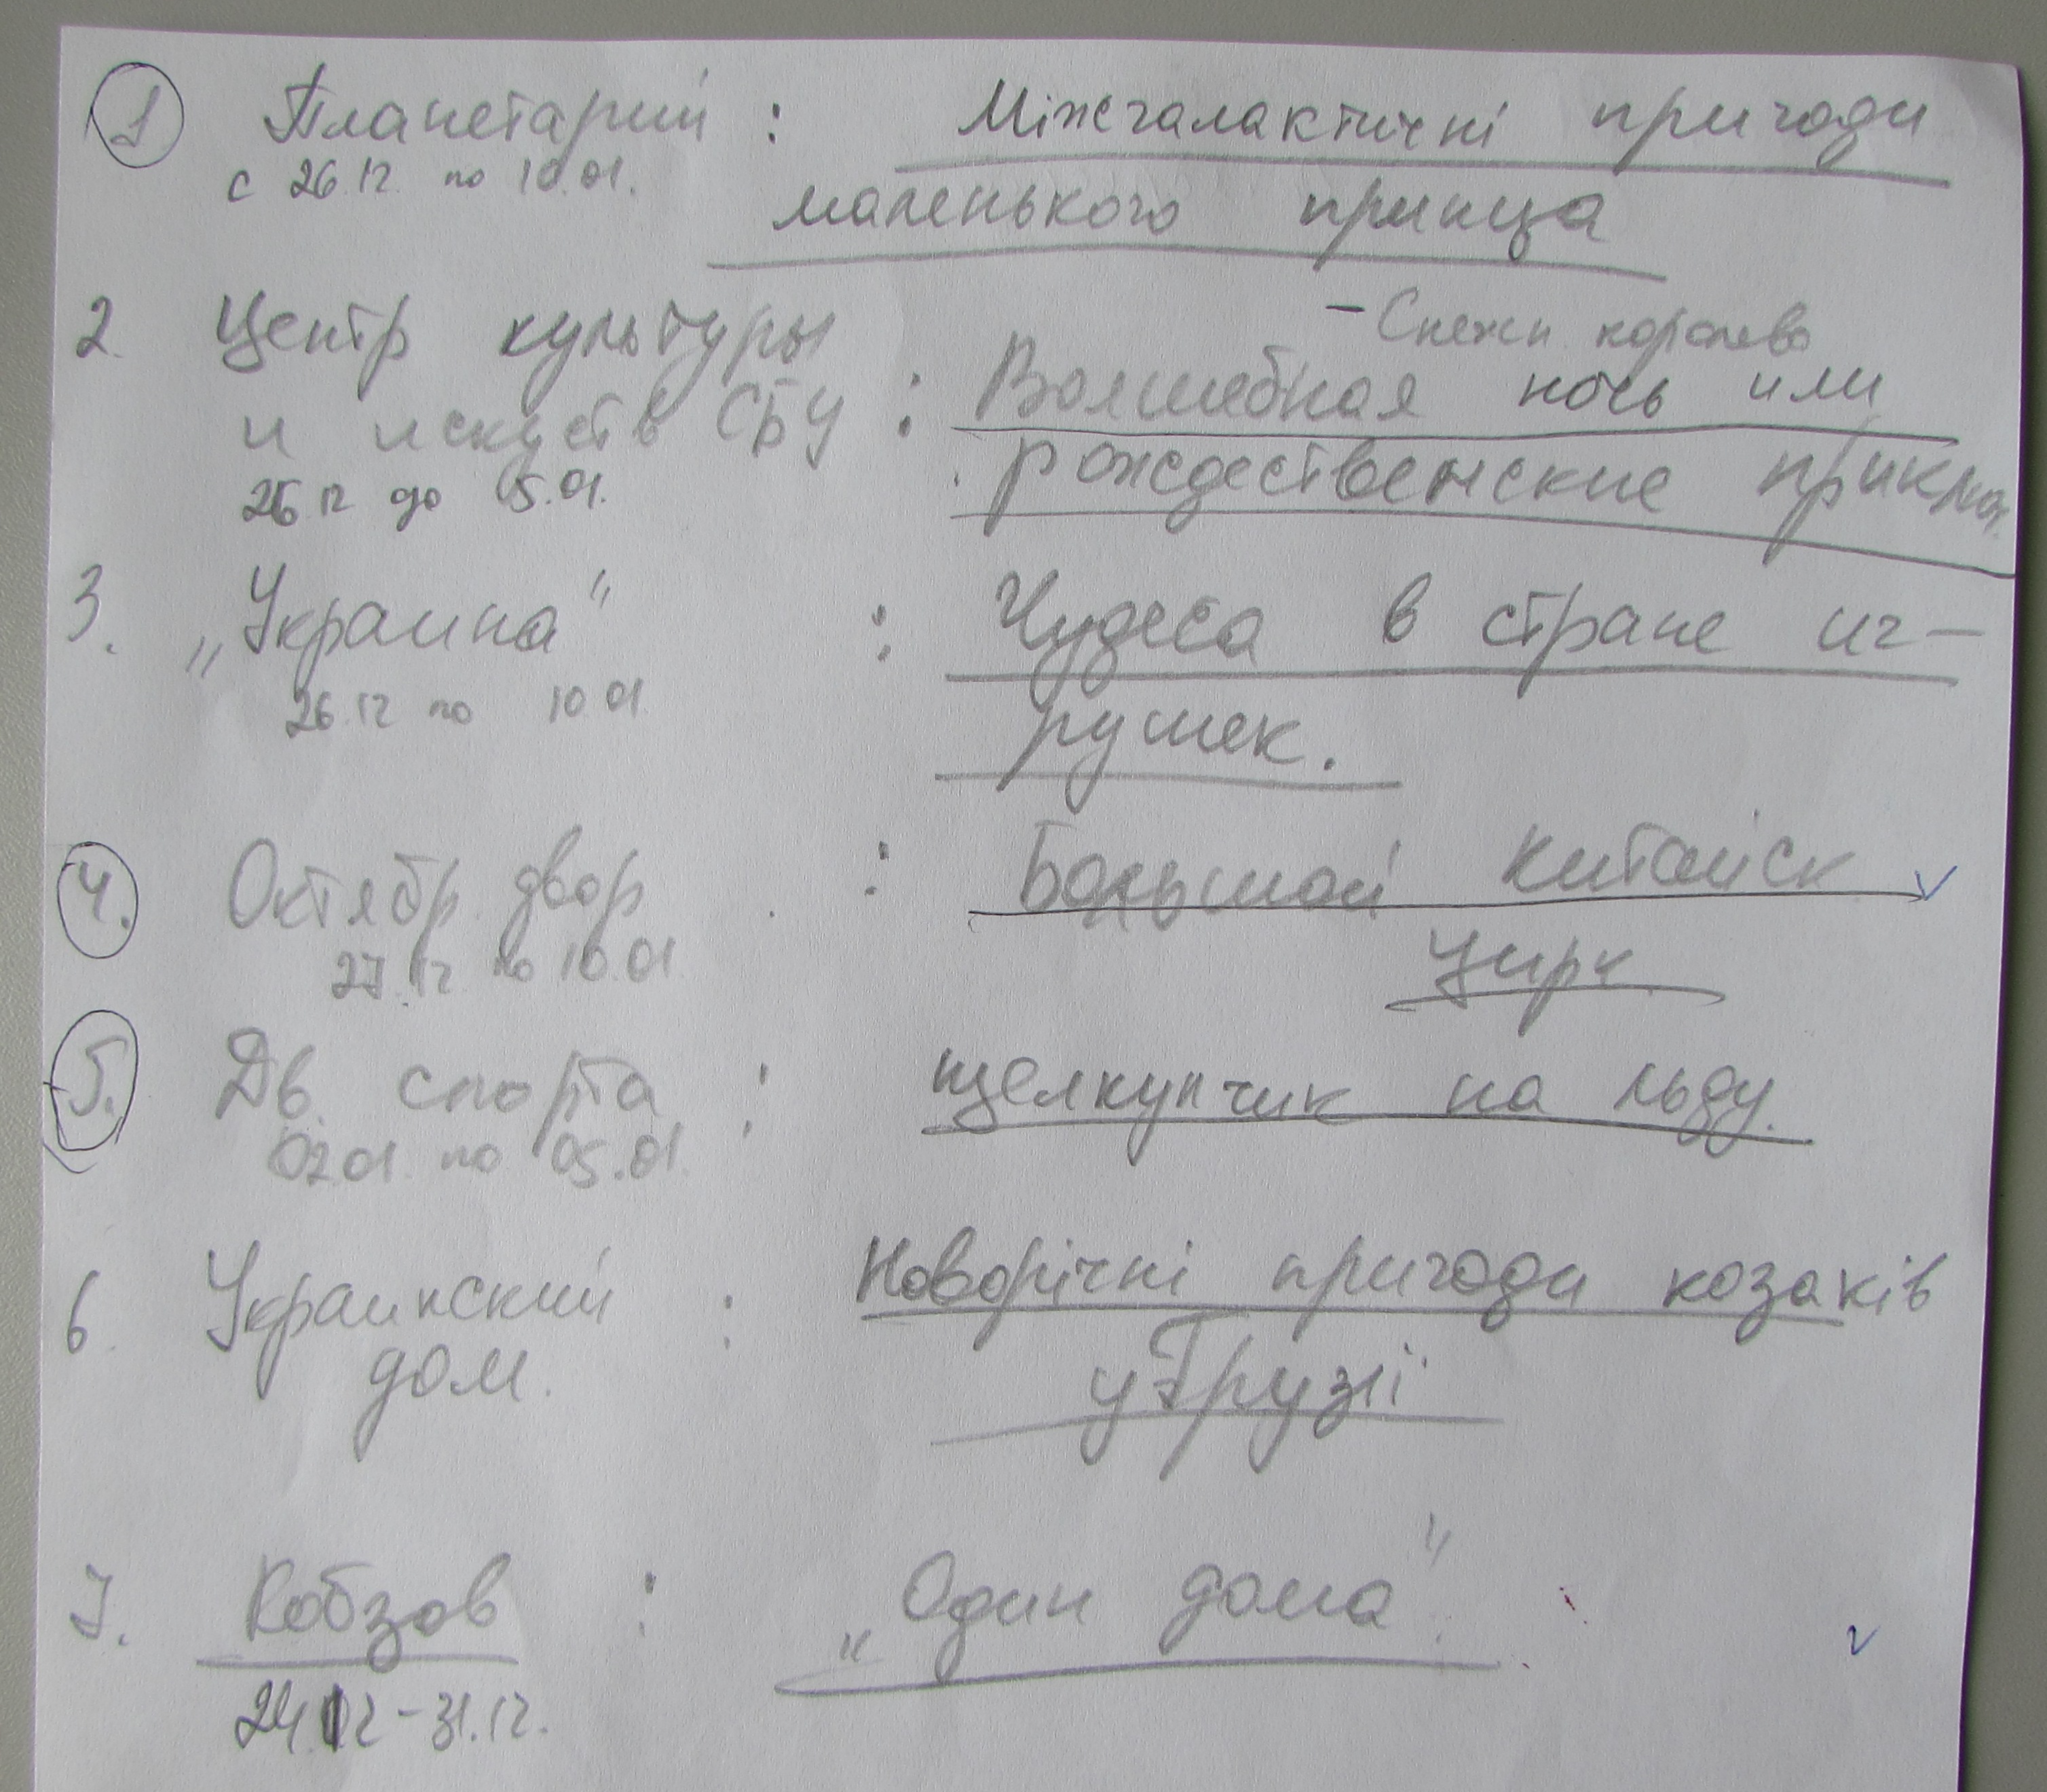 1 Планетарий : Міжгалактичні пригоди
с 26.12. по 10.01. маленького принца
2. Центр культуры - Снежн. королева
и искуств СБУ : Волшебная ночь или
26.12 до 05.01. рождественские приключ.
3. „Украина" : Чудеса в стране иг-
26.12 по 10.01 рушек.
4. Октябр. двор : Большой китайск
27.12 по 10.01 цирк
5. Дв. спорта : щелкунчик на льду.
02.01. по 05.01.
6. Украинский : Новорічні пригоди козаків
дом. у Грузії
7. Кобзов : „Один дома".
24.12-31.12.